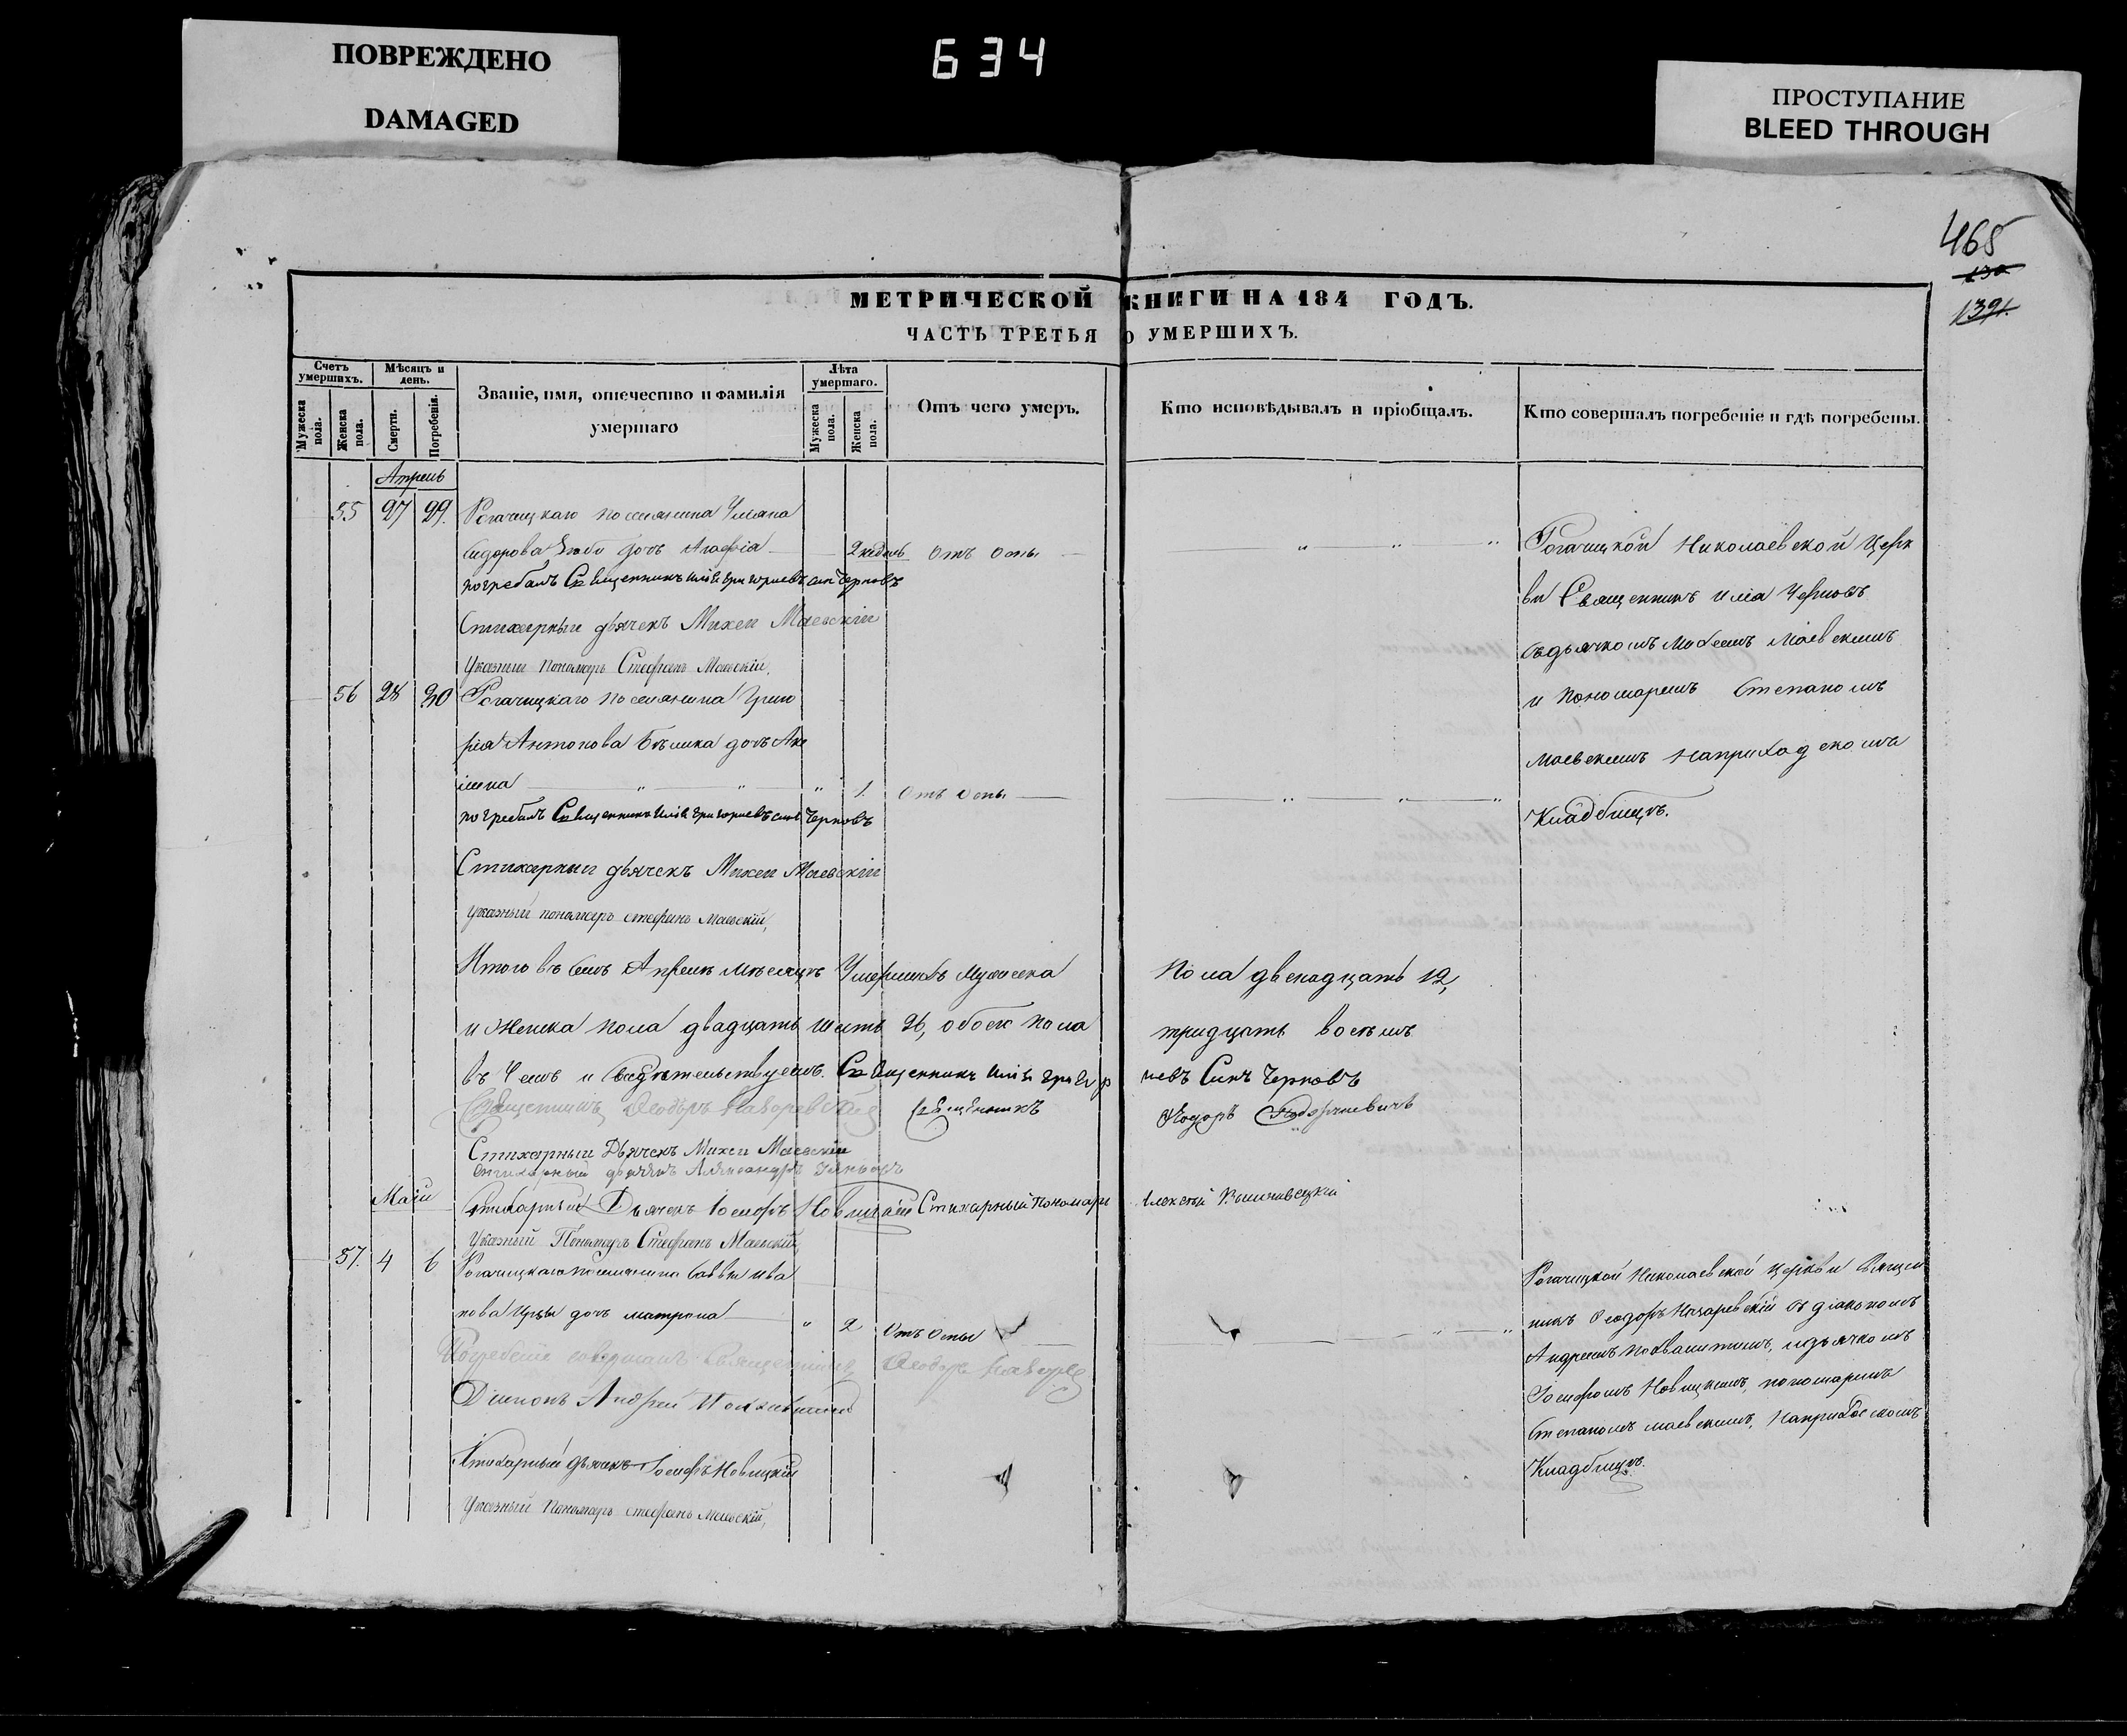 ПОВРЕЖДЕНО
DAMAGED
634
ПРОСТУПАНИЕ
BLEED THROUGH
465
130
1391.
МЕТРИЧЕСКОЙ КНИГИ НА 184 ГОДЪ.
ЧАСТЬ ТРЕТЬЯ О УМЕРШИХЪ.
Счетъ умершихъ.
Мѣсяцъ и день.
Званіе, имя, отечество и фамилія умершаго
Лѣта умершаго.
Отъ чего умеръ.
Кто исповѣдывалъ и пріобщалъ.
Кто совершалъ погребеніе и гдѣ погребены.
Мужеска пола.
Женска пола.
Смерти.
Погребенія.
Мужеска пола.
Женска пола.
Апрель
55 27 29. Рогачицкаго поселянина
Сидорова дочь Агафія 2 недель Отъ оспы
погребалъ Священникъ Илія Григориевъ сынъ Черновъ
Стихарный дьячекъ Михей Маевскій
Указный пономарь Стефанъ Маевскій,
Рогачицкой Николаевской Церк
ви Священникъ Илія Черновъ
съ дьячкомъ Михеемъ Маевскимъ
и пономаремъ Степаномъ
Маевскимъ на приходскомъ
Кладбищѣ.
56 28 30 Рогачицкаго поселянина Григо
рія Антонова Бѣлика дочь Аки
лина " " " 1. Отъ оспы " " "
погребалъ Священникъ Илія Григориевъ сынъ Черновъ
Стихарный дьячекъ Михей Маевскій
указный пономарь стефанъ Маевскій,
Итого въ семъ Апреле месяце Умершихъ Мужеска пола двенадцать 12,
и Женска пола двадцать шесть 26, обоего пола тридцать восемь
въ Чемъ и свидѣтельствуемъ. Священникъ Илія Григориевъ Сынъ Черновъ
Священникъ Ѳеодоръ Назаревскій Священникъ Ѳеодоръ
Стихарный Дьячекъ Михей Маевскій
Стихарный дьячекъ Александръ
Маій
Стихарный Дьячекъ Іосифъ Новицкій Стихарный Пономарь Алексѣй
Указный Пономарь Стефанъ Маевскій,
57. 4 6 Рогачицкаго поселянина Саввы Ива
нова дочь матрона " 2 Отъ Оспы " "
Погребеніе совершалъ Священникъ Ѳеодоръ Назарев
Діаконъ Андрей
Стихарный дьячекъ Іосифъ Новицкій
Указный Пономарь стефанъ Маевскій,
Рогачицкой Николаевской Церкви Священ
никъ Ѳеодоръ Назаревскій съ діакономъ
Андреемъ и дьячкомъ
Іосифомъ Новицкимъ, пономаремъ
Степаномъ маевскимъ, на приходскомъ
Кладбищѣ.